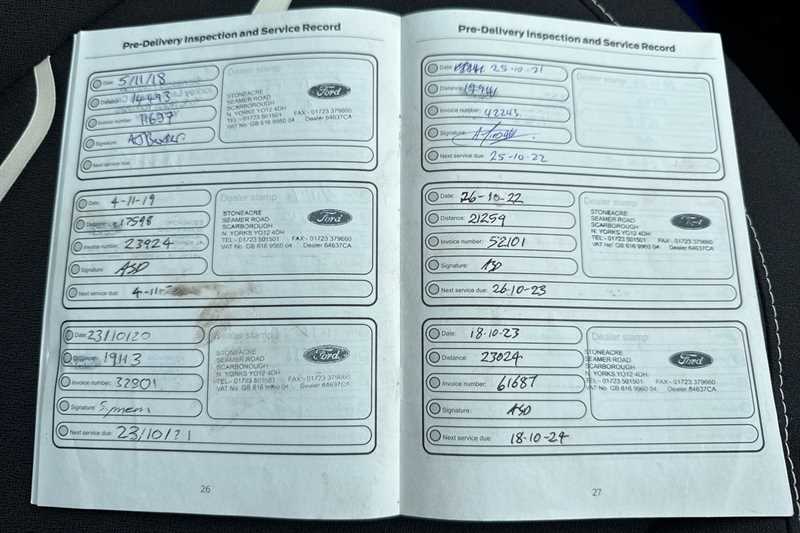 Pre-Delivery Inspection and Service Record
Date: 5/11/18
Dealer stamp
Distance: 14493
Invoice number: 11697
Signature:
Next service due:
STONEACRE
SEAMER ROAD
SCARBOROUGH
N. YORKS YO12 4DH
TEL:- 01723 501501 FAX:- 01723 379660
VAT No: GB 616 9960 04 Dealer 64637CA
Ford
Date: 4-11-19
Dealer stamp
Distance: 17598
Invoice number: 23924
Signature: ASD
Next service due: 4-11-
STONEACRE
SEAMER ROAD
SCARBOROUGH
N. YORKS YO12 4DH
TEL:- 01723 501501 FAX:- 01723 379660
VAT No: GB 616 9960 04 Dealer 64637CA
Ford
Date: 23/10/20
Dealer stamp
Distance: 19113
Invoice number: 32901
Signature:
Next service due: 23/10/21
STONEACRE
SEAMER ROAD
SCARBOROUGH
N. YORKS YO12 4DH
TEL:- 01723 501501 FAX:- 01723 379660
VAT No: GB 616 9960 04 Dealer 64637CA
Ford
26
Pre-Delivery Inspection and Service Record
Date: 25-10-21
Dealer stamp
Distance: 19941
Invoice number: 42243
Signature:
Next service due: 25-10-22
Date: 26-10-22
Dealer stamp
Distance: 21259
Invoice number: 52101
Signature: ASD
Next service due: 26-10-23
STONEACRE
SEAMER ROAD
SCARBOROUGH
N. YORKS YO12 4DH
TEL:- 01723 501501 FAX:- 01723 379660
VAT No: GB 616 9960 04 Dealer 64637CA
Ford
Date: 18-10-23
Dealer stamp
Distance: 23024
Invoice number: 61687
Signature: ASD
Next service due: 18-10-24
STONEACRE
SEAMER ROAD
SCARBOROUGH
N. YORKS YO12 4DH
TEL:- 01723 501501 FAX:- 01723 379660
VAT No: GB 616 9960 04 Dealer 64637CA
Ford
27